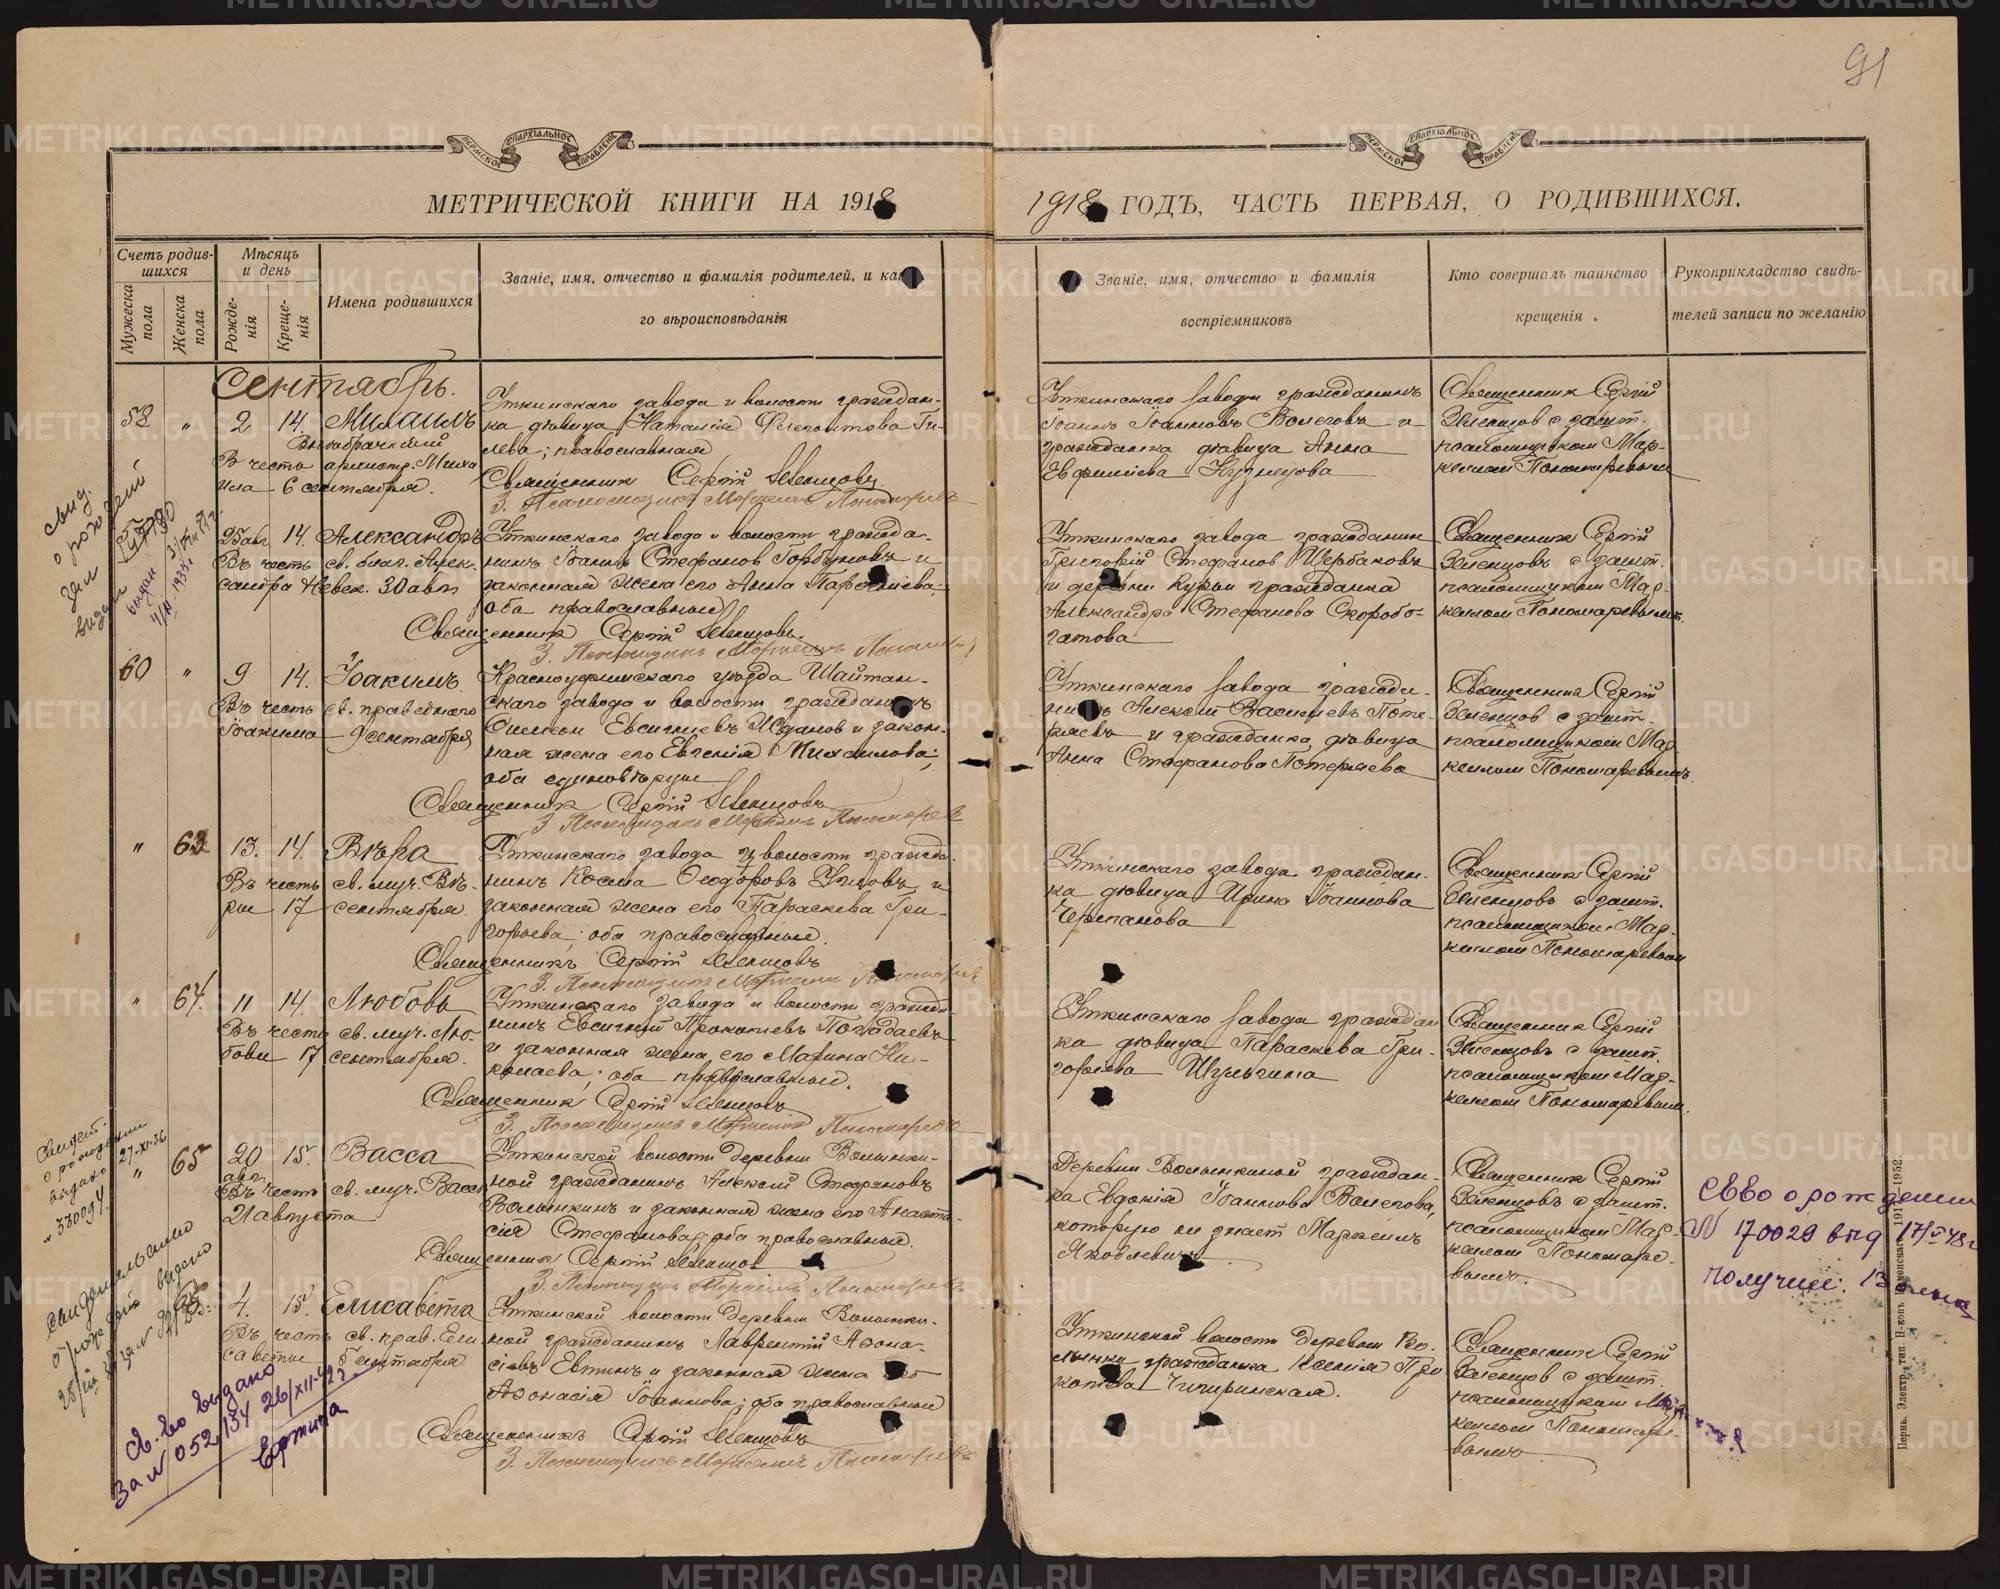 91
ПЕРМСКОЕ ЕПАРХІАЛЬНОЕ УПРАВЛЕНІЕ
ПЕРМСКОЕ ЕПАРХІАЛЬНОЕ УПРАВЛЕНІЕ
МЕТРИЧЕСКОЙ КНИГИ НА 1918
1918 ГОДЪ, ЧАСТЬ ПЕРВАЯ, О РОДИВШИХСЯ.
Счетъ родив-
шихся
Мужеска
пола
Женска
пола
Мѣсяцъ
и день
Рожде-
нія
Креще-
нія
Имена родившихся
Званіе, имя, отчество и фамилія родителей, и како
го вѣроисповѣданія
Званіе, имя, отчество и фамилія
воспріемниковъ
Кто совершалъ таинство
крещенія
Рукоприкладство свидѣ-
телей записи по желанію
Сентябрь.
58 „ 2 14. Михаилъ
Внѣбрачный
В честь архистр. Миха
ила 6 сентября.
Уткинскаго завода и волости граждан-
ка дѣвица Наталія Филиппова Ги-
лева; православная
Священник Сергій Зеленцовъ.
З. Псаломщика Маркелъ Пономаревъ
Уткинскаго завода гражданинъ
Іоаннъ Іоанновъ Волеговъ и
гражданка дѣвица Анна
Евфиміева Кузнецова
Священник Сергій
Зеленцов с зашт.
псаломщиком Мар-
келом Пономаревым
14. Александръ
Въ честь св. благ. Алек-
сандра Невск. 30 авг.
Уткинскаго завода и волости гражда-
нинъ Іоаннъ Стефанов Горбуновъ и
законная жена его Анна
оба православные
Священник Сергій Зеленцовъ.
З. Псаломщика Маркелъ Пономаревъ
Уткинскаго завода гражданин
Григорій Стефанов Щербаковъ
и деревни Курьи гражданка
Александра Стефанова Скоробо-
гатова
Священник Сергій
Зеленцовъ с зашт.
псаломщиком Мар-
келом Пономаревымъ.
60 „ 9 14. Іоакимъ.
Въ честь св. праведнаго
Іоакима 9 сентября
Красноуфимскаго уѣзда Шайтан-
скаго завода и волости гражданинъ
Симеон Евсигніевъ и закон-
ная жена его Евгенія Михаилова;
оба единовѣрцы
Священник Сергій Зеленцовъ
З. Псаломщика Маркелъ Пономаревъ
Уткинскаго завода гражда-
нинъ Алексій Васильевъ Поте-
ряевъ и гражданка дѣвица
Анна Стефанова Потеряева
Священник Сергій
Зеленцов с зашт.
псаломщиком Мар-
келом Пономаревымъ.
„ 63 13. 14. Вѣра
Въ честь св. муч. Вѣ-
ры 17 сентября.
Уткинскаго завода и волости гражда-
нинъ Косма Ѳеодоровъ и
законная жена его Параскева Гри-
горьева; оба православные.
Священникъ Сергій Зеленцовъ
З. Псаломщика Маркелъ Пономаревъ
Уткинскаго завода граждан-
ка дѣвица Ирина Іоаннова
Черепанова
Священник Сергій
Зеленцовъ с зашт.
псаломщиком Мар-
келом Пономаревым
„ 64. 11 14. Любовь
Въ честь св. муч. Лю-
бови 17 сентября.
Уткинскаго завода и волости гражда-
нинъ Евсигній Прокопьевъ Погадаевъ
и законная жена его Марина Ни-
колаева; оба православные.
Священник Сергій Зеленцовъ
З. Псаломщика Маркелъ Пономаревъ
Уткинскаго завода граждан
ка дѣвица Параскева Гри-
горьева Шульгина
Священник Сергій
Зеленцовъ с зашт.
псаломщиком Мар-
келом Пономаревым.
„ 65 20 15. Васса
авг.
Въ честь св. муч. Вассы
21 августа
Уткинской волости деревни Волынки-
ной гражданинъ Алексій Стефановъ
Волынкинъ и законная жена его Анаста-
сія Стефанова; оба православные.
Священник Сергій Зеленцов
З. Псаломщика Маркелъ Пономаревъ
Деревни Волынкиной граждан-
ка Евдокія Іоаннова Волегова,
Яковлевич
Священник Сергій
Зеленцовъ с зашт.
псаломщиком Мар-
келом Пономаре-
вымъ.
4. 15. Елисавета
Въ честь св. прав. Ели
саветы 5 сентября
Уткинской волости деревни Волынки-
ной гражданинъ Лаврентій Аѳона-
сіевъ Евтинъ и законная жена его
Аѳонасія Іоаннова; оба православные
Священникъ Сергій Зеленцовъ
З. Псаломщика Маркелъ Пономаревъ
Уткинской волости деревни Во-
лынки гражданка Ксенія Про
копьева Чичиринская.
Священник Сергій
Зеленцов с зашт.
псаломщиком Мар-
келом Пономаре-
вымъ.
свид.
о рождении
выдан
Свидет.
о рождении
выдано 27-XI-56
Свидетельство
о рождении выдано
Св. во выдано
За № 052,134 26/XII-
Св-во о рождении
№ 170029 17/V 48 г
получил.
METRIKI.GASO-URAL.RU